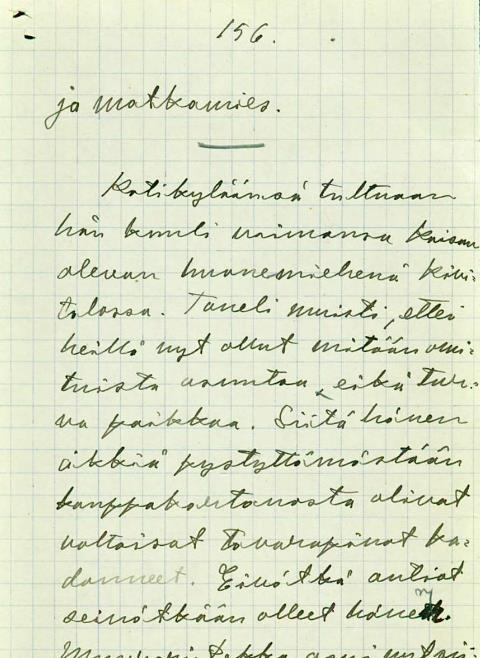 156.
ja matkamies.
Kotikyläänsä tultuaan
hän kuuli vaimonsa Kaisan
olevan huonemiehenä Kivi-
talossa. Taneli muisti, ettei
heillä nyt ollut mitään omi-
tuista asuntoa, eikä tur-
va paikkaa. Siitä hänen
äkkiä pystyttämästään
kauppakartanosta olivat
valtaisat tavarapinot ka-
donneet. Eivätkä autiot
seinätkään olleet hänen.